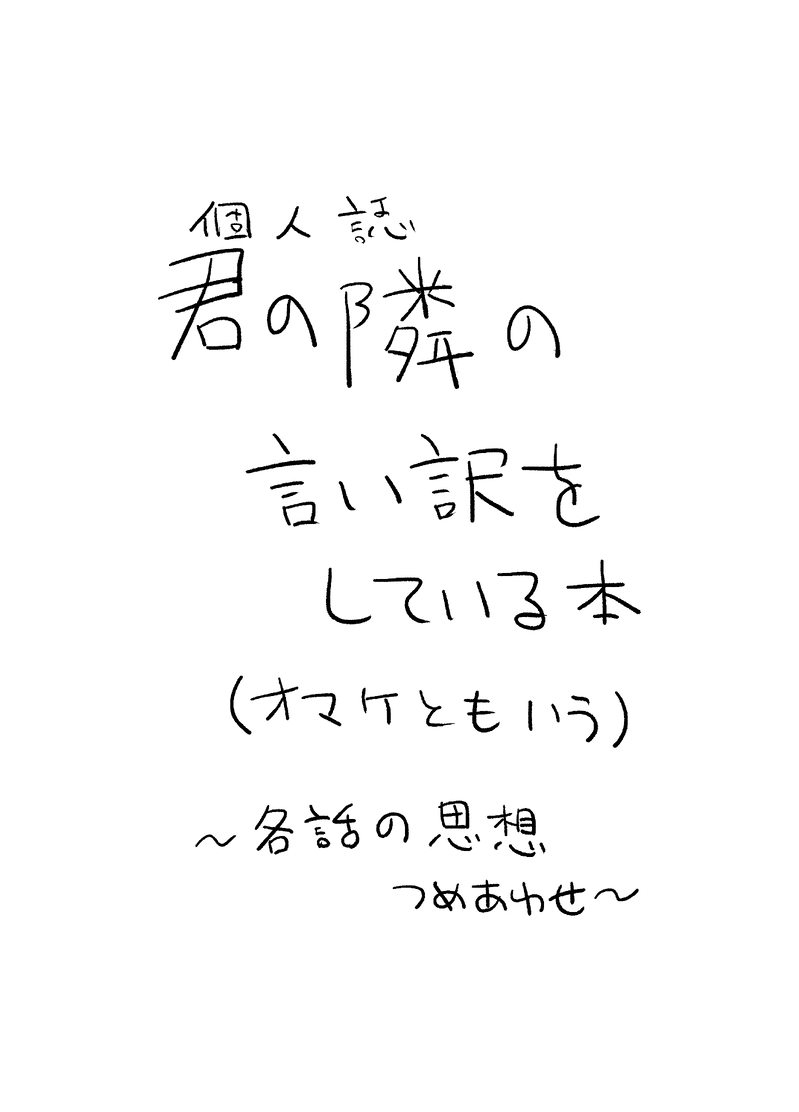 個人誌
君の隣の
言い訳を
している本
(オマケともいう)
～各話の思想
つめあわせ～